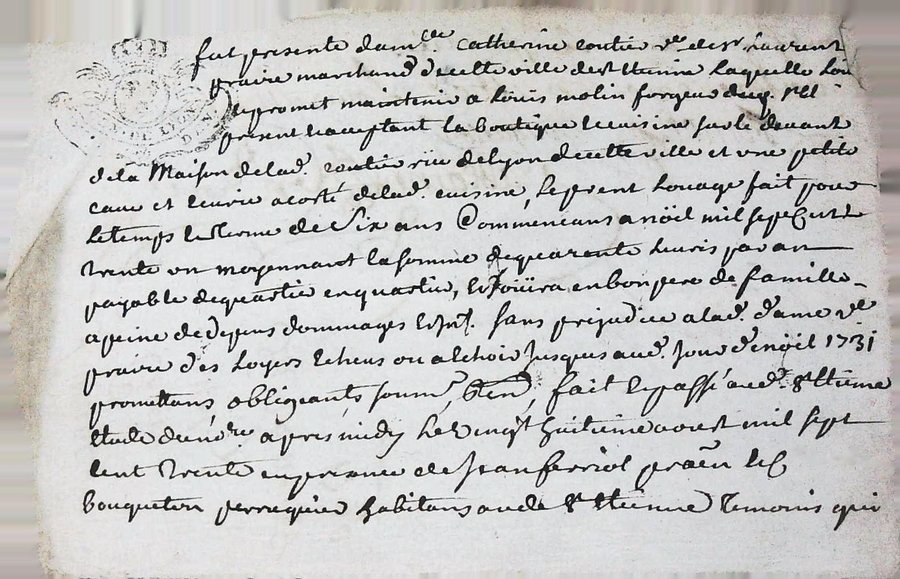 fut presente dam.lle Catherine coutié v.e de s.r Laurent
praire marchand de cette ville de st Etienne Laquelle Loue
et promet maintenir a Louis molin forgeur
present et acceptant la boutique et cuisine sur le devant
de la Maison de lad. coutié rüe de lyon de cette ville et une petite
cave et ecurie a costé de lad. cuisine, Le present Louage fait pour
Le temps et terme de Six ans Commencans a nöel mil sept cent
trente un moyennant la somme de quarente livres par an
payable de quartié en quartié, et joüira en bon pere de famille
a peine de depens dommages et int. sans prejudice a lad. dame v.e
praire des Loyers echeus ou a echoir jusques aud. jour de nöel 1731
promettans obligeants soum. ren. fait et passé aud. st Etienne
Etude du no.re apres midy Le Vingt huitieme aoust mil sept
cent trente en presence de jean ferriol praticien
bouqueton perrequier habitans aud. st Etienne temoins qui